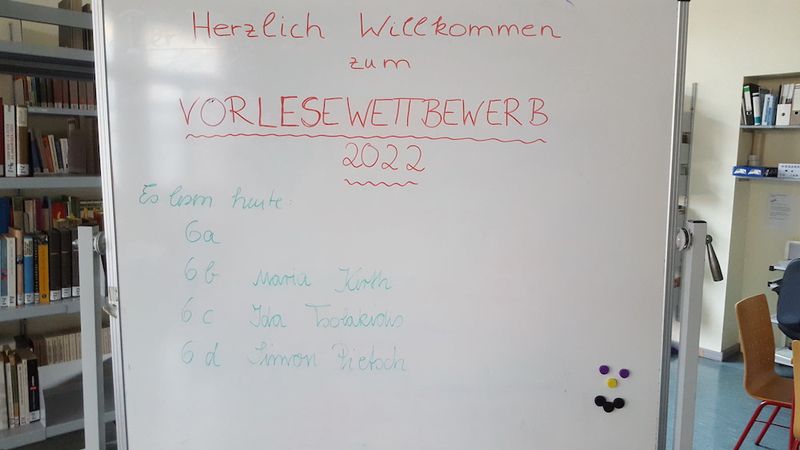 Herzlich Willkommen
zum
VORLESEWETTBEWERB
2022
Es lesen heute:
6a
6b Maria Kirth
6c Ida Tsolakidis
6d Simon Pietsch